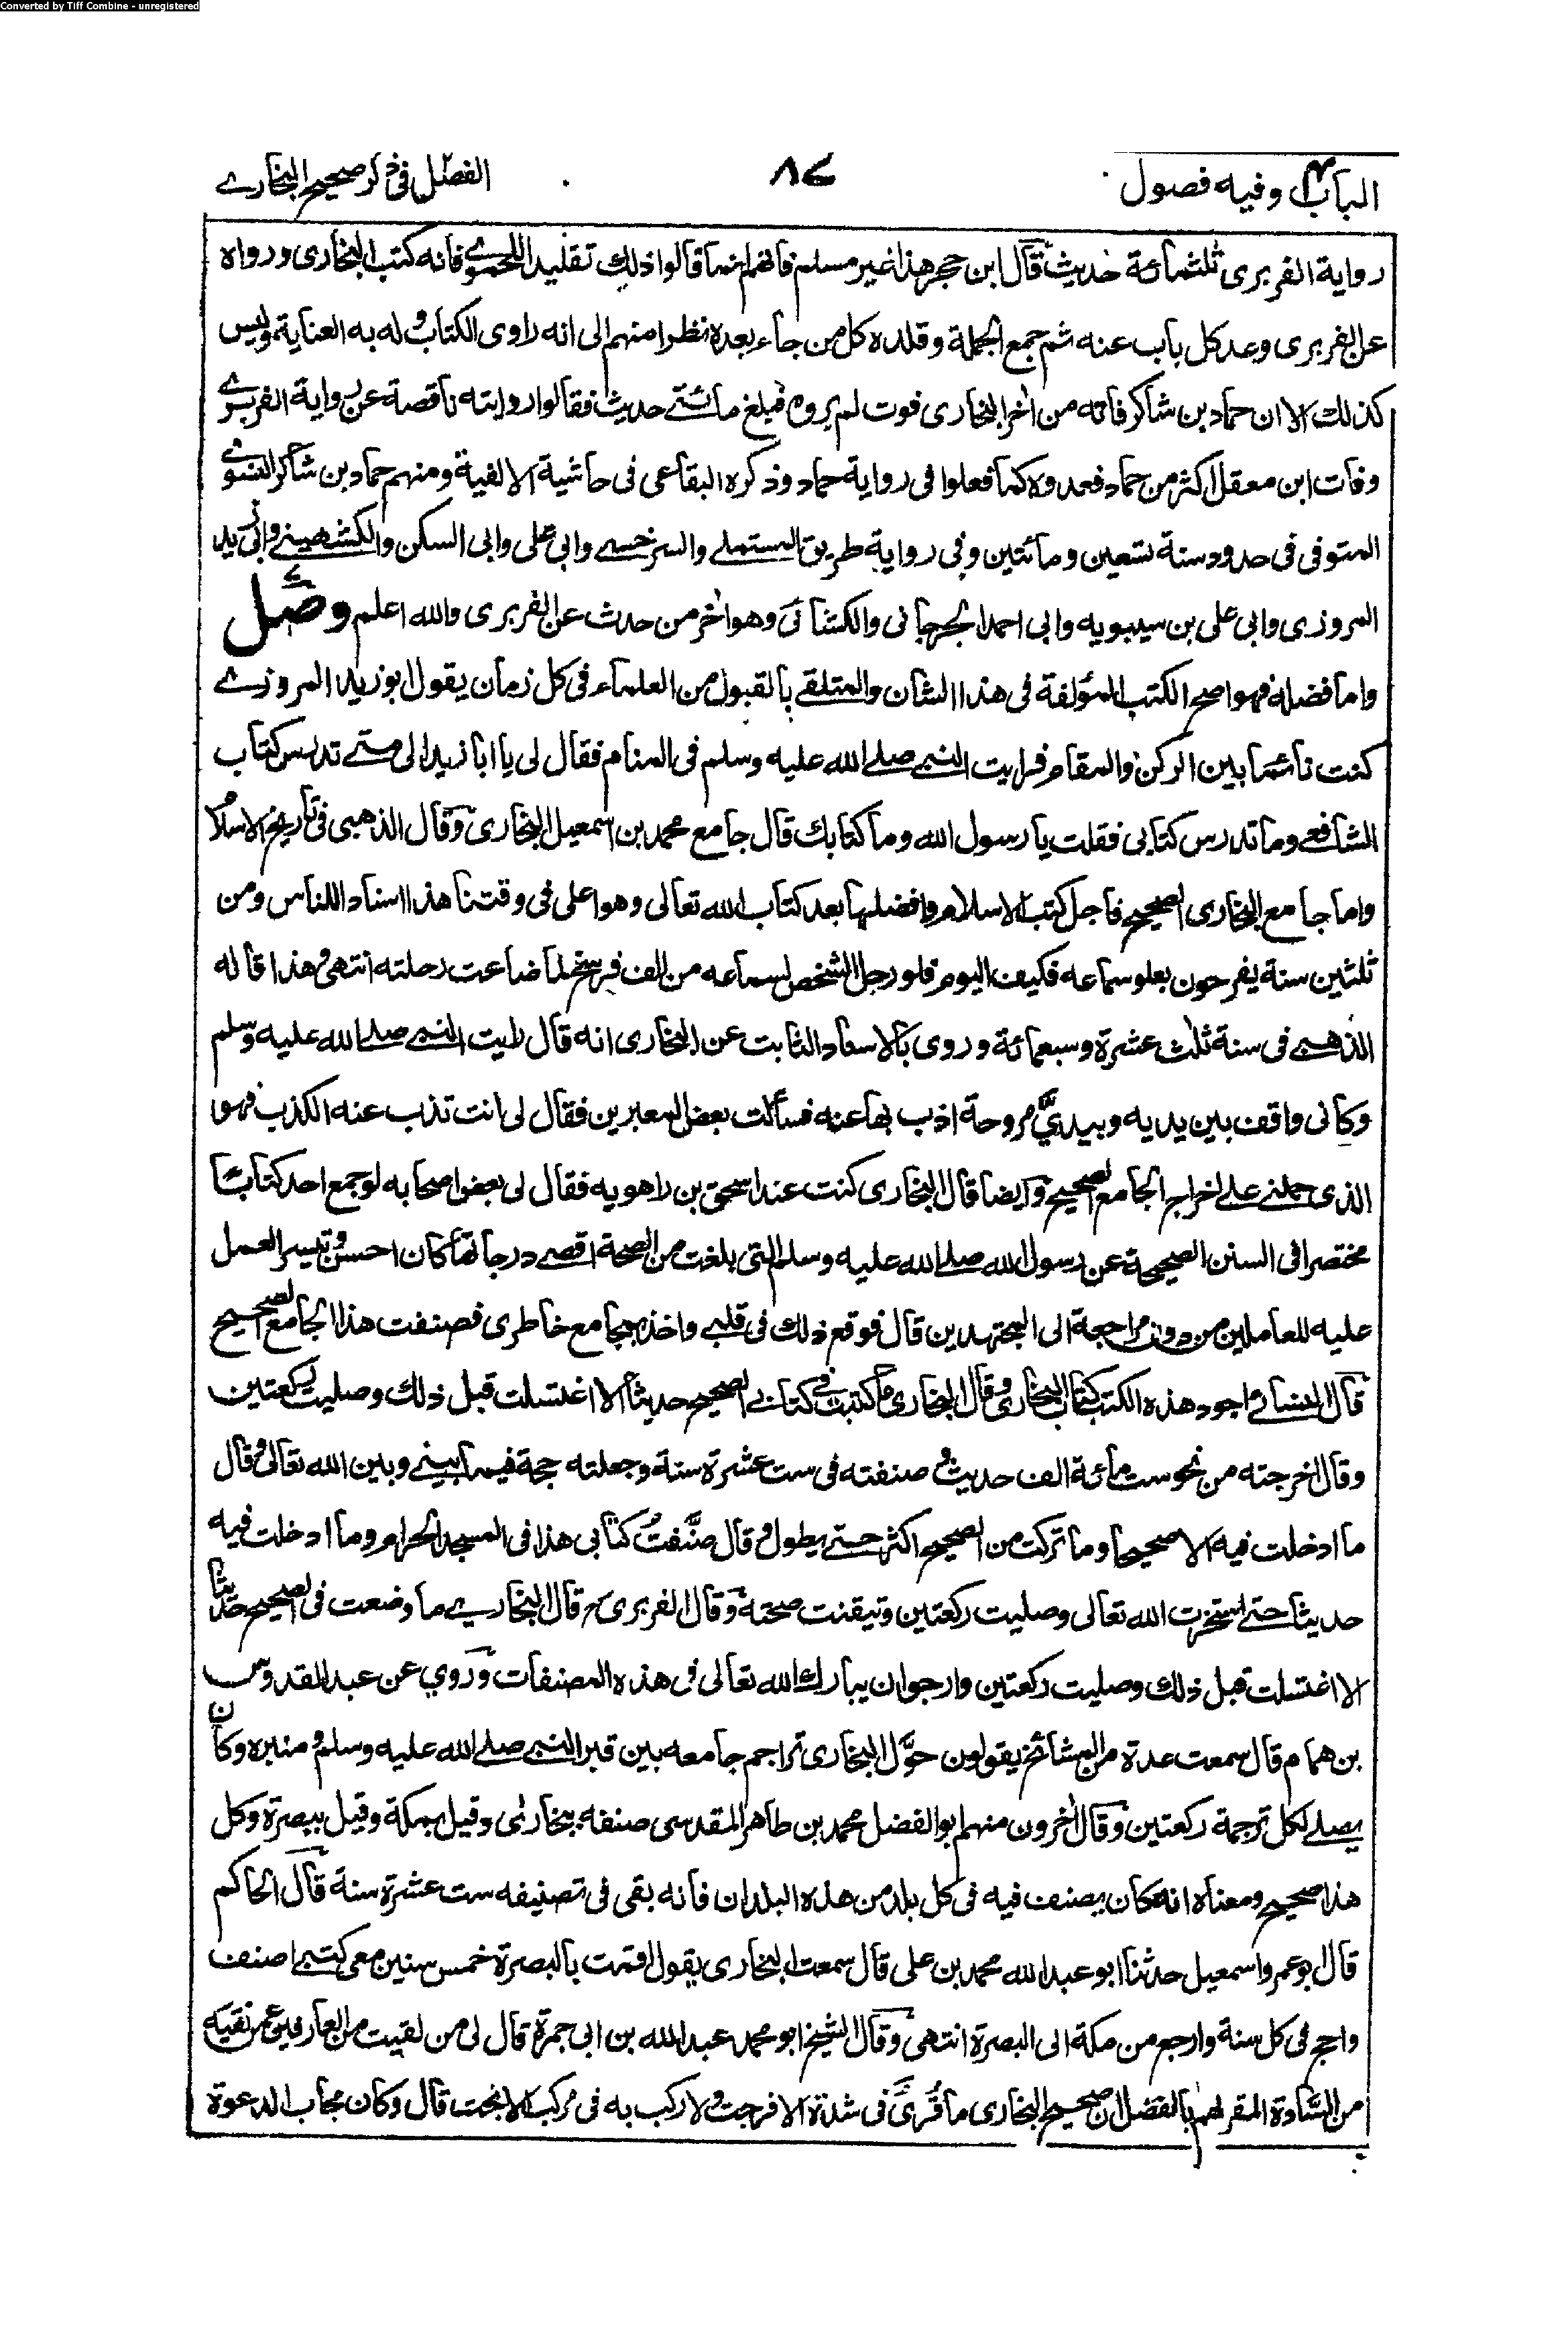 Converted by Tiff Combine - unregistered
الباب ٤ وفيه فصول
٨٧
الفصل فى ذكر صحيح البخارے
رواية الفربرى ثلثمائة حديث قال ابن حجر هذا غير مسلم فانهم انما قالوا ذلك تقليدا للحموے فانه كتب البخارى ورواه
عن الفربرى وعد كل باب عنه ثم جمع الجملة وقلده كل من جاء بعده نظرا منهم الى انه راوى الكتاب وله به العناية وليس
كذلك الا ان حماد بن شاكر فاته من اٰخر البخارى فوت لم يروه فبلغ مائتے حديث فقالوا روايته ناقصة عن رواية الفربرے
وفات ابن معقل اكثر من حماد فعدوه كما فعلوا فى رواية حماد وذكره البقاعى فى حاشية الالفية ومنهم حماد بن شاكر النسوے
المتوفى فى حدود سنة تسعين ومائتين وفى رواية طريق المستملے والسرخسے وابى على وابى السكن والكشمهينے وابى زيد
المروزى وابى على بن سيبويه وابى احمد الجرجانى والكشانى وهو اٰخر من حدث عن الفربرى والله اعلم وصل
واما فضله فهو اصح الكتب المؤلفة فى هذا الشان والمتلقے بالقبول من العلماء فى كل زمان يقول ابو زيد المروزے
كنت نائما بين الركن والمقام فرايت النبے صلے الله عليه وسلم فى المنام فقال لى يا ابا زيد الى متے تدرس كتاب
الشافعے وما تدرس كتابى فقلت يا رسول الله وما كتابك قال جامع محمد بن اسمعيل البخارى وقال الذهبى فى تاريخ الاسلام
واما جامع البخارى الصحيح فاجل كتب الاسلام وافضلها بعد كتاب الله تعالى وهو اعلى فى وقتنا هذا اسنادا للناس ومن
ثلثين سنة يفرحون بعلو سماعه فكيف اليوم فلو رحل الشخص لسماعه من الف فرسخ لما ضاعت رحلته انتهى وهذا قاله
الذهبے فى سنة ثلث عشرة وسبعمائة وروى بالاسناد الثابت عن البخارى انه قال رايت النبے صلے الله عليه وسلم
وكانى واقف بين يديه وبيدىّ مروحة اذب بها عنه فسألت بعض المعبرين فقال لى انت تذب عنه الكذب فهو
الذى حملنے علے اخراج الجامع الصحيح وايضا قال البخارى كنت عند اسحق بن راهويه فقال لى بعض اصحابه لو جمع احد كتابا
مختصرا فى السنن الصحيحة عن رسول الله صلے الله عليه وسلم التى بلغت من الصحة اقصے درجاتها كان احسن وتيسر العمل
عليه للعاملين من دون مراجعة الى المجتهدين قال فوقع ذلك فى قلبے واخذ بمجامع خاطرى فصنفت هذا الجامع الصحيح
قال النسائے اجود هذه الكتب كتاب البخارى وقال البخارى ما كتبت فى كتابے الصحيح حديثا الا اغتسلت قبل ذلك وصليت ركعتين
وقال اخرجته من نحو ست مائة الف حديث و صنفته فى ست عشرة سنة وجعلته حجة فيما بينے وبين الله تعالى وقال
ما ادخلت فيه الا صحيحا وما تركت من الصحيح اكثر حتے يطول وقال صنّفتُ كتابى هذا فى المسجد الحرام وما ادخلت فيه
حديثا حتے استخرت الله تعالى وصليت ركعتين وتيقنت صحته وقال الفربرى قال البخارے ما وضعت فى الصحيح حديثا
الا اغتسلت قبل ذلك وصليت ركعتين وارجو ان يبارك الله تعالى فى هذه المصنفات وروي عن عبد القدوس
بن همام قال سمعت عدة من المشائخ يقولون حوّل البخارى تراجم جامعه بين قبر النبے صلے الله عليه وسلم ومنبره وكان
يصلے لكل ترجمة ركعتين وقال اٰخرون منهم ابو الفضل محمد بن طاهر المقدسى صنفه ببخارىٰ وقيل بمكة وقيل ببصرة وكل
هذا صحيح ومعناه انه كان يصنف فيه فى كل بلد من هذه البلدان فانه بقى فى تصنيفه ست عشرة سنة قال الحاكم
قال ابو عمرو اسمعيل حدثنا ابو عبد الله محمد بن على قال سمعت البخارى يقول اقمت بالبصرة خمس سنين معى كتبے اصنف
واحج فى كل سنة وارجع من مكة الى البصرة انتهى وقال الشيخ ابو محمد عبد الله بن ابى جمرة قال لى من لقيت من العارفين عمن لقيه
من السادة المقر لهم بالفضل ان صحيح البخارى ما قُرئَ فى شدة الا فرجت ولا ركب به فى مركب الا نجت قال وكان مجاب الدعوة